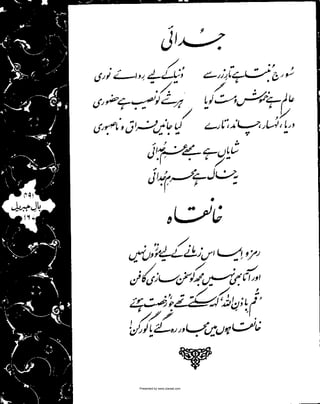 جدائی
سورج بنتا ہے تارِ زر سے دنیا کے لیے ردائے نوری
عالم ہے خموش و مست گویا ہر شے کو نصیب ہے حضوری
دریا، کہسار، چاند، تارے کیا جانیں فراق و ناصبوری
شایاں ہے مجھے غمِ جدائی
یہ خاک ہے محرمِ جدائی
بالِ جبریل
خانقاہ
رمز و ایما اس زمانے کے لیے موزوں نہیں
اور آتا بھی نہیں مجھ کو سخن سازی کا فن
'قُم بِاذنِ اللہ' کہہ سکتے تھے جو، رخصت ہوئے
خانقاہوں میں مجاور رہ گئے یا گورکن!
Presented by www.ziaraat.com